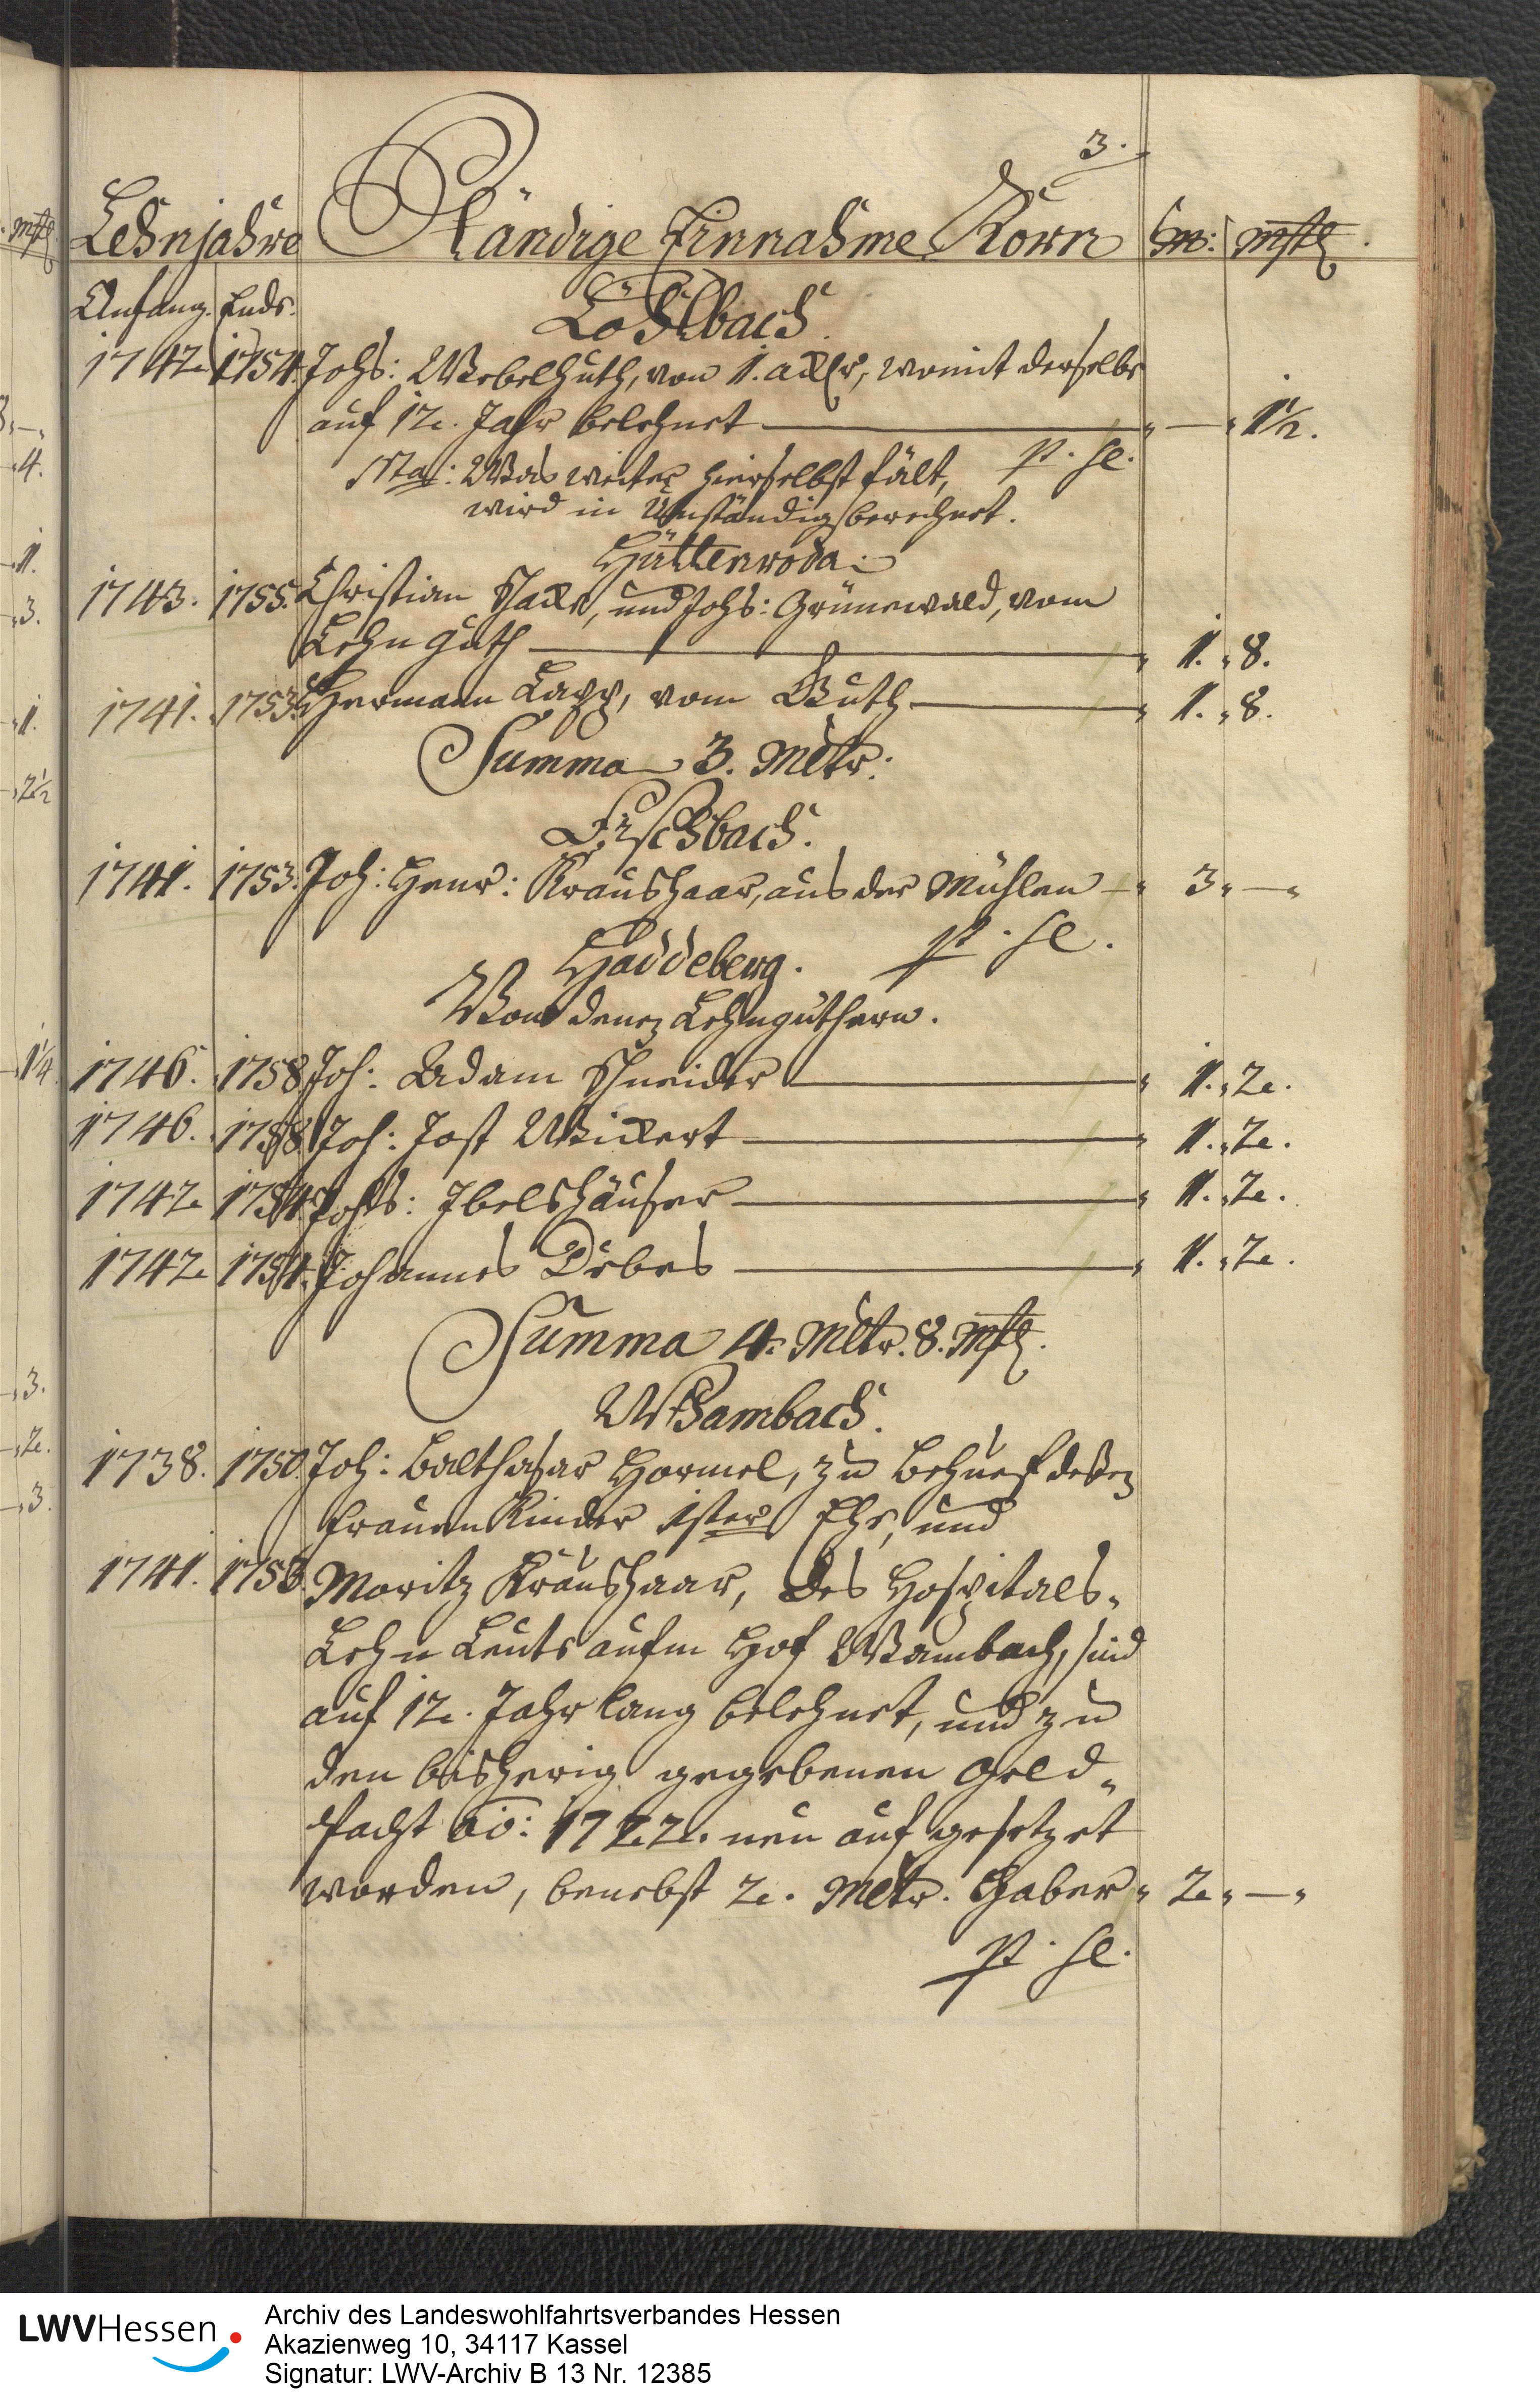 3.
Lehnjahre Ständige Einnahme Korn M: mſtl.
Anfang. Ende. Löhlbach.
1742. 1754. Johs: Webelhuth, von 1. acker, womit derselbe
auf 12. Jahr belehnet „ — „ 1½.
Nta: Was weiter hierselbst fält, p. se.
wird in Unständig berechnet.
Hüttenroda.
1743. 1755. Christian Hacke, und Johs: Grünewald, vom
Lehn Guth „ 1. „ 8.
1741. 1753. Hermann Lapp, vom Guth „ 1. „ 8.
Summa 3. Mltr:
Fischbach.
1741. 1753. Joh: Henr: Kraushaar, aus der Mühlen „ 3 „ — „
p. se.
Haddeberg.
Von denen Lehnguthern.
1746. 1758. Joh: Adam Schneider „ 1. „ 2.
1746. 1758. Joh: Jost Wickert „ 1. „ 2.
1742. 1754. Johs: Ibelshäuser „ 1. „ 2.
1742. 1754. Johannes Debes „ 1. „ 2.
Summa 4. Mltr. 8. mſtl.
Wambach.
1738. 1750. Joh: Balthasar Hormel, zu Behuef deßen
Frauen Kinder 1ster Ehe, und
1741. 1753. Moritz Kraushaar, des Hospitals„
Lehn Leute aufm Hof Wambach, sind
auf 12. Jahr lang belehnet, und zu
den bisherig gegebenen Geld„
Pacht ao: 1722. neu auf gesetzet
worden, benebst 2. Mltr. Haber „ 2 „ — „
p. se.
LWVHessen
Archiv des Landeswohlfahrtsverbandes Hessen
Akazienweg 10, 34117 Kassel
Signatur: LWV-Archiv B 13 Nr. 12385